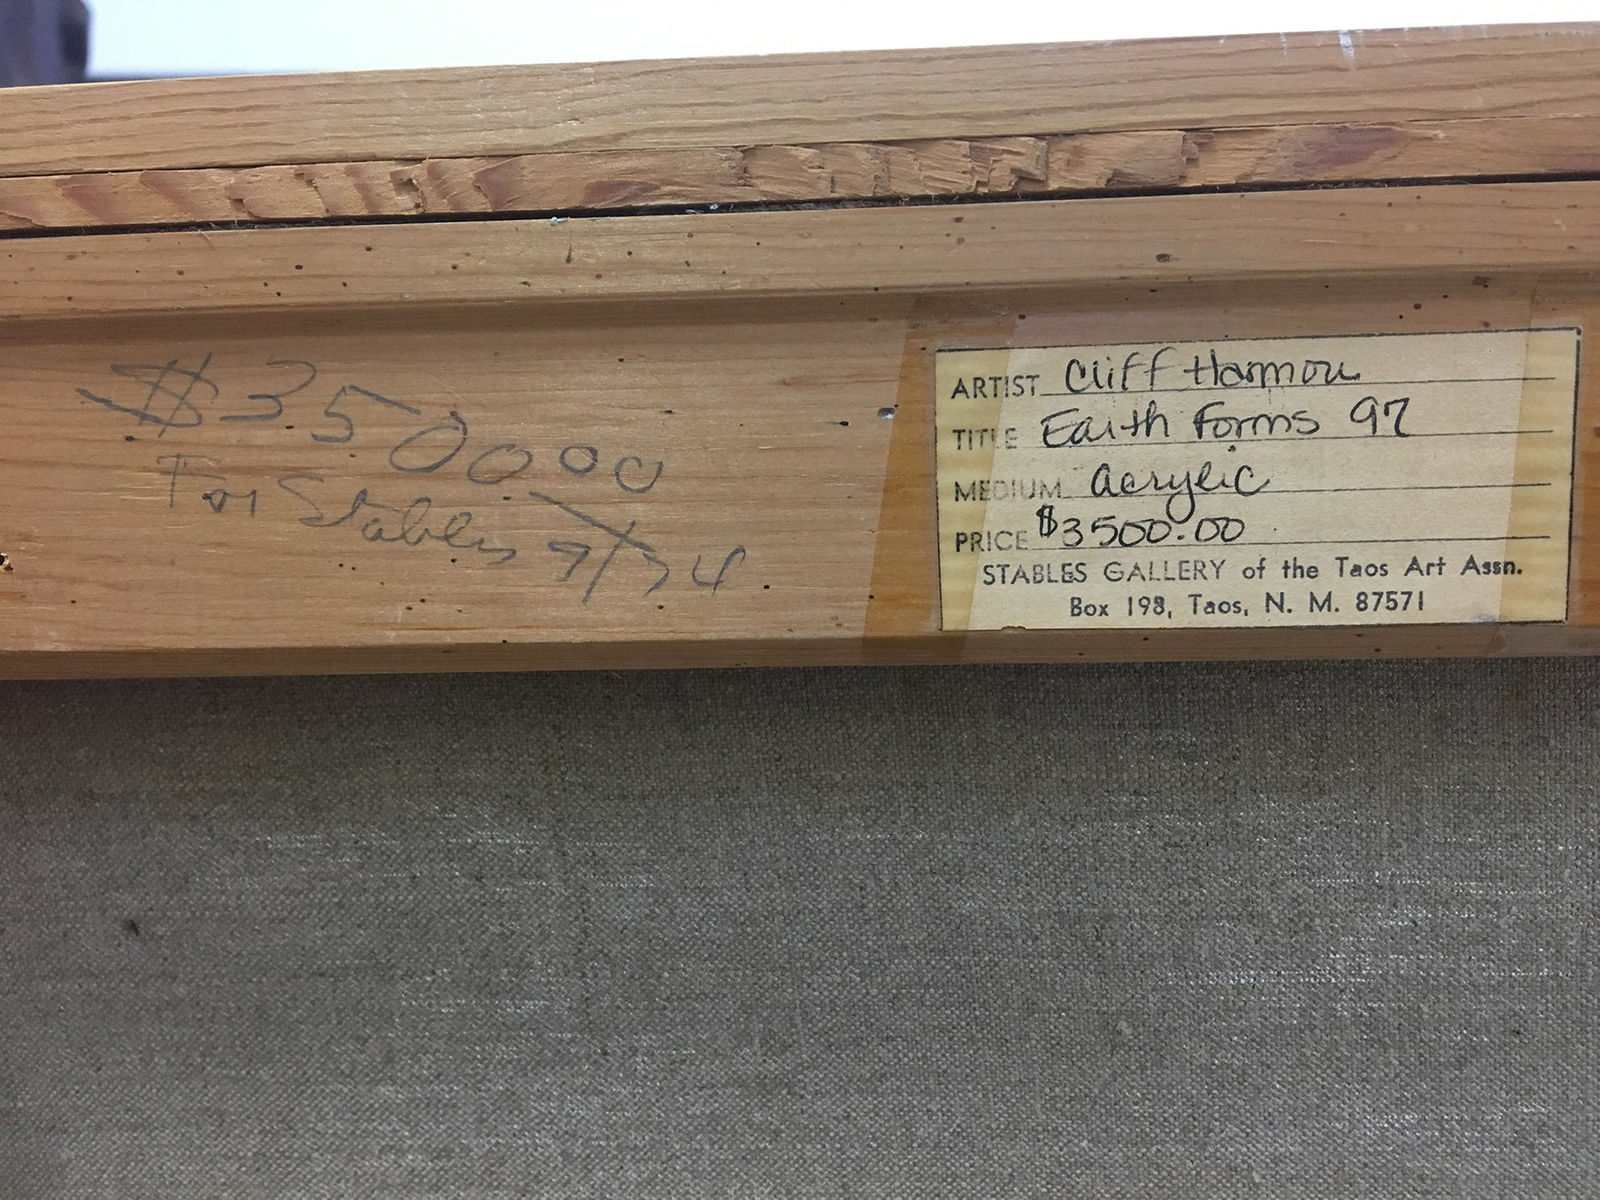 $3500.00
For Stables 7/74
ARTIST Cliff Harmon
TITLE Earth Forms 97
MEDIUM Acrylic
PRICE $3500.00
STABLES GALLERY of the Taos Art Assn.
Box 198, Taos, N. M. 87571